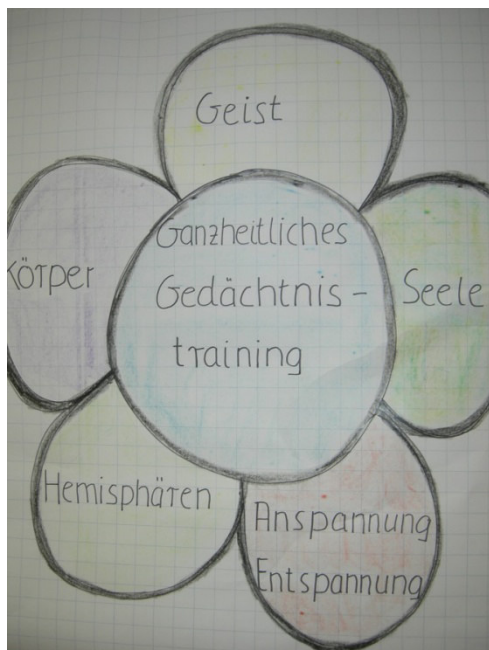 Geist
Ganzheitliches
Gedächtnis-
training
Körper
Seele
Hemisphären
Anspannung
Entspannung